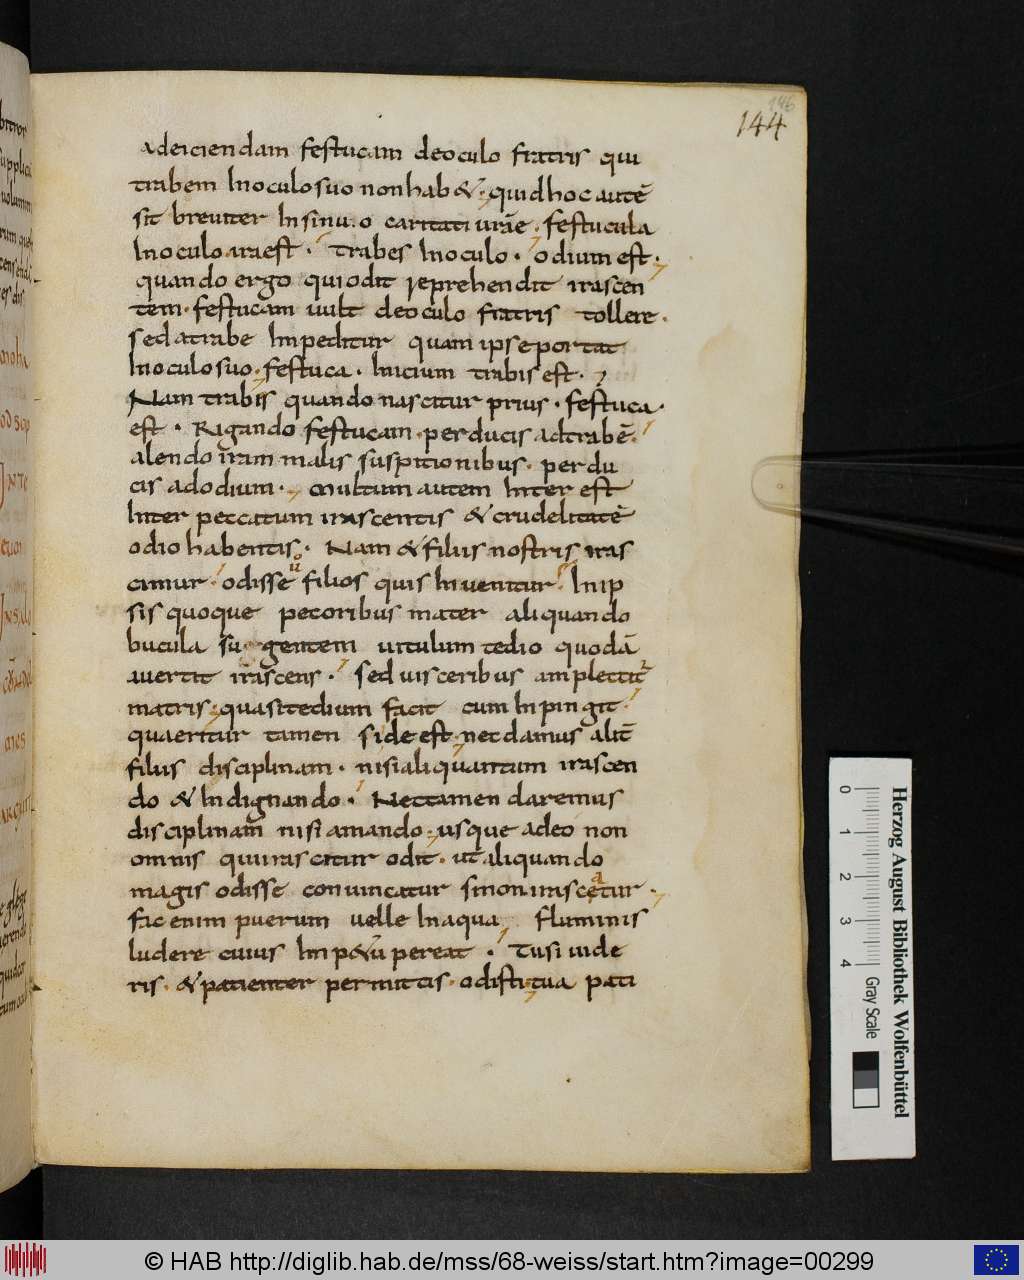 146
144
adeiciendam festucam deoculo fratris qui
trabem Inoculosuo nonhab&. quidhoc autē
sit breuiter Insinu.o caritati urāe. festucula
Inoculo iraest. trabes Inoculo. odium est.
quando ergo quiodit reprehendit irascen
tem. festucam uult deoculo fratris tollere.
sed atrabe Impeditur quam ipse portat
Inoculosuo. festuca. Inicium trabis est.
Nam trabis quando nascitur prius. festuca
est. Rigando festucam perducis adtrabē.
alendo iram malis suspitionibus. perdu
cis adodium. Multum autem Inter est
Inter peccatum irascentis &crudelitatē
odio habentis. Nam &filiis nostris iras
cimur. odisse filios quis Inuenitur. Inip
sis quoque pecoribus mater aliquando
bucula su gentem uitulum tedio quodā
auertit irascens. sed uisceribus amplectit
matris. quasitedium facit cum Inpingit.
quaeritur tamen sideest. necdamus alit̄
filiis disciplinam. nisialiquantum irascen
do &Indignando. Nectamen daremus
disciplinam nisi amando. usque adeo non
omnis quiirascitur odit. ut aliquando
magis odisse conuincatur sinonirascetur.
fac enim puerum uelle Inaqua fluminis
ludere cuius Imp&ū pereat. Tusi uide
ris. &patienter permittis. odisti. tua pati
0 1 2 3 4
Gray Scale
Herzog August Bibliothek Wolfenbüttel
© HAB http://diglib.hab.de/mss/68-weiss/start.htm?image=00299